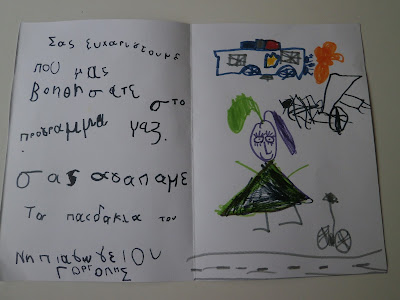 Σας ευχαριστουμε
που μας
βοηθησατε στο
προγραμμα γαζ.
σας αγαπαμε
Τα παιδακια του
Νηπιαγωγειου
Γοργοπης